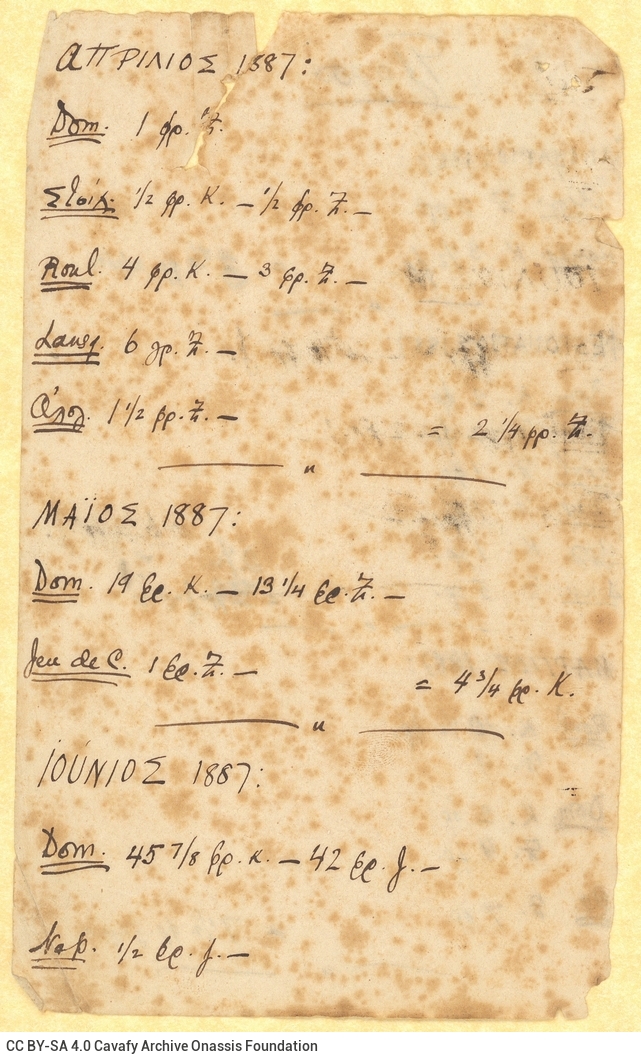 ΑΠΡΙΛΙΟΣ 1887:
Dom. 1 φρ. Ζ.
Στοίχ. 1/2 φρ. Κ. — 1/2 φρ. Ζ. —
Roul. 4 φρ. Κ. — 3 φρ. Ζ. —
Lansq. 6 φρ. Ζ. —
1 1/2 φρ. Ζ. —
= 2 1/4 φρ. Ζ.
— " —
ΜΑΪΟΣ 1887:
Dom. 19 φρ. Κ. — 13 1/4 φρ. Ζ. —
Jeu de C. 1 φρ. Ζ. —
= 4 3/4 φρ. Κ.
— " —
ἸΟΎΝΙΟΣ 1887:
Dom. 45 7/8 φρ. Κ. — 42 φρ. ζ. —
Nap. 1/2 φρ. ζ. —
CC BY-SA 4.0 Cavafy Archive Onassis Foundation